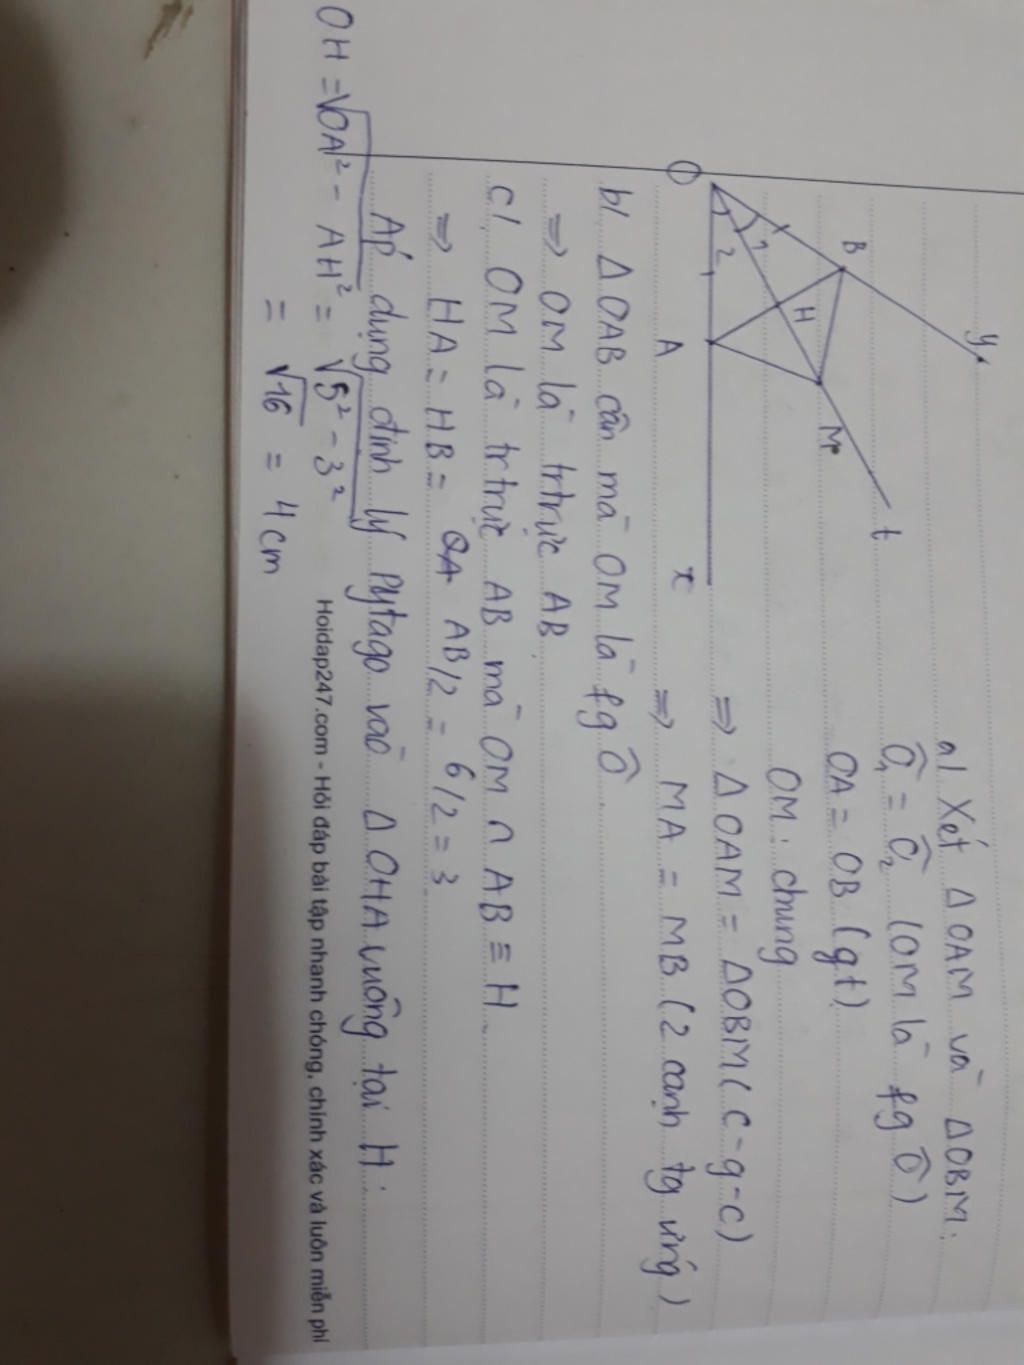 y
B
t
M
H
1
2
O
A
x
a/ Xét Δ OAM và Δ OBM:
Ô₁ = Ô₂ (OM là fg Ô)
OA = OB (gt)
OM: chung
⇒ Δ OAM = Δ OBM (c-g-c)
⇒ MA = MB (2 cạnh tg ứng)
b/ Δ OAB cân mà OM là fg Ô.
⇒ OM là trtrực AB.
c/ OM là trtrực AB mà OM ∩ AB ≡ H
⇒ HA = HB = AB/2 = 6/2 = 3
Áp dụng định lý Pytago vào Δ OHA vuông tại H:
OH = √OA² - AH² = √5² - 3²
= √16 = 4cm
Hoidap247.com - Hỏi đáp bài tập nhanh chóng, chính xác và luôn miễn phí